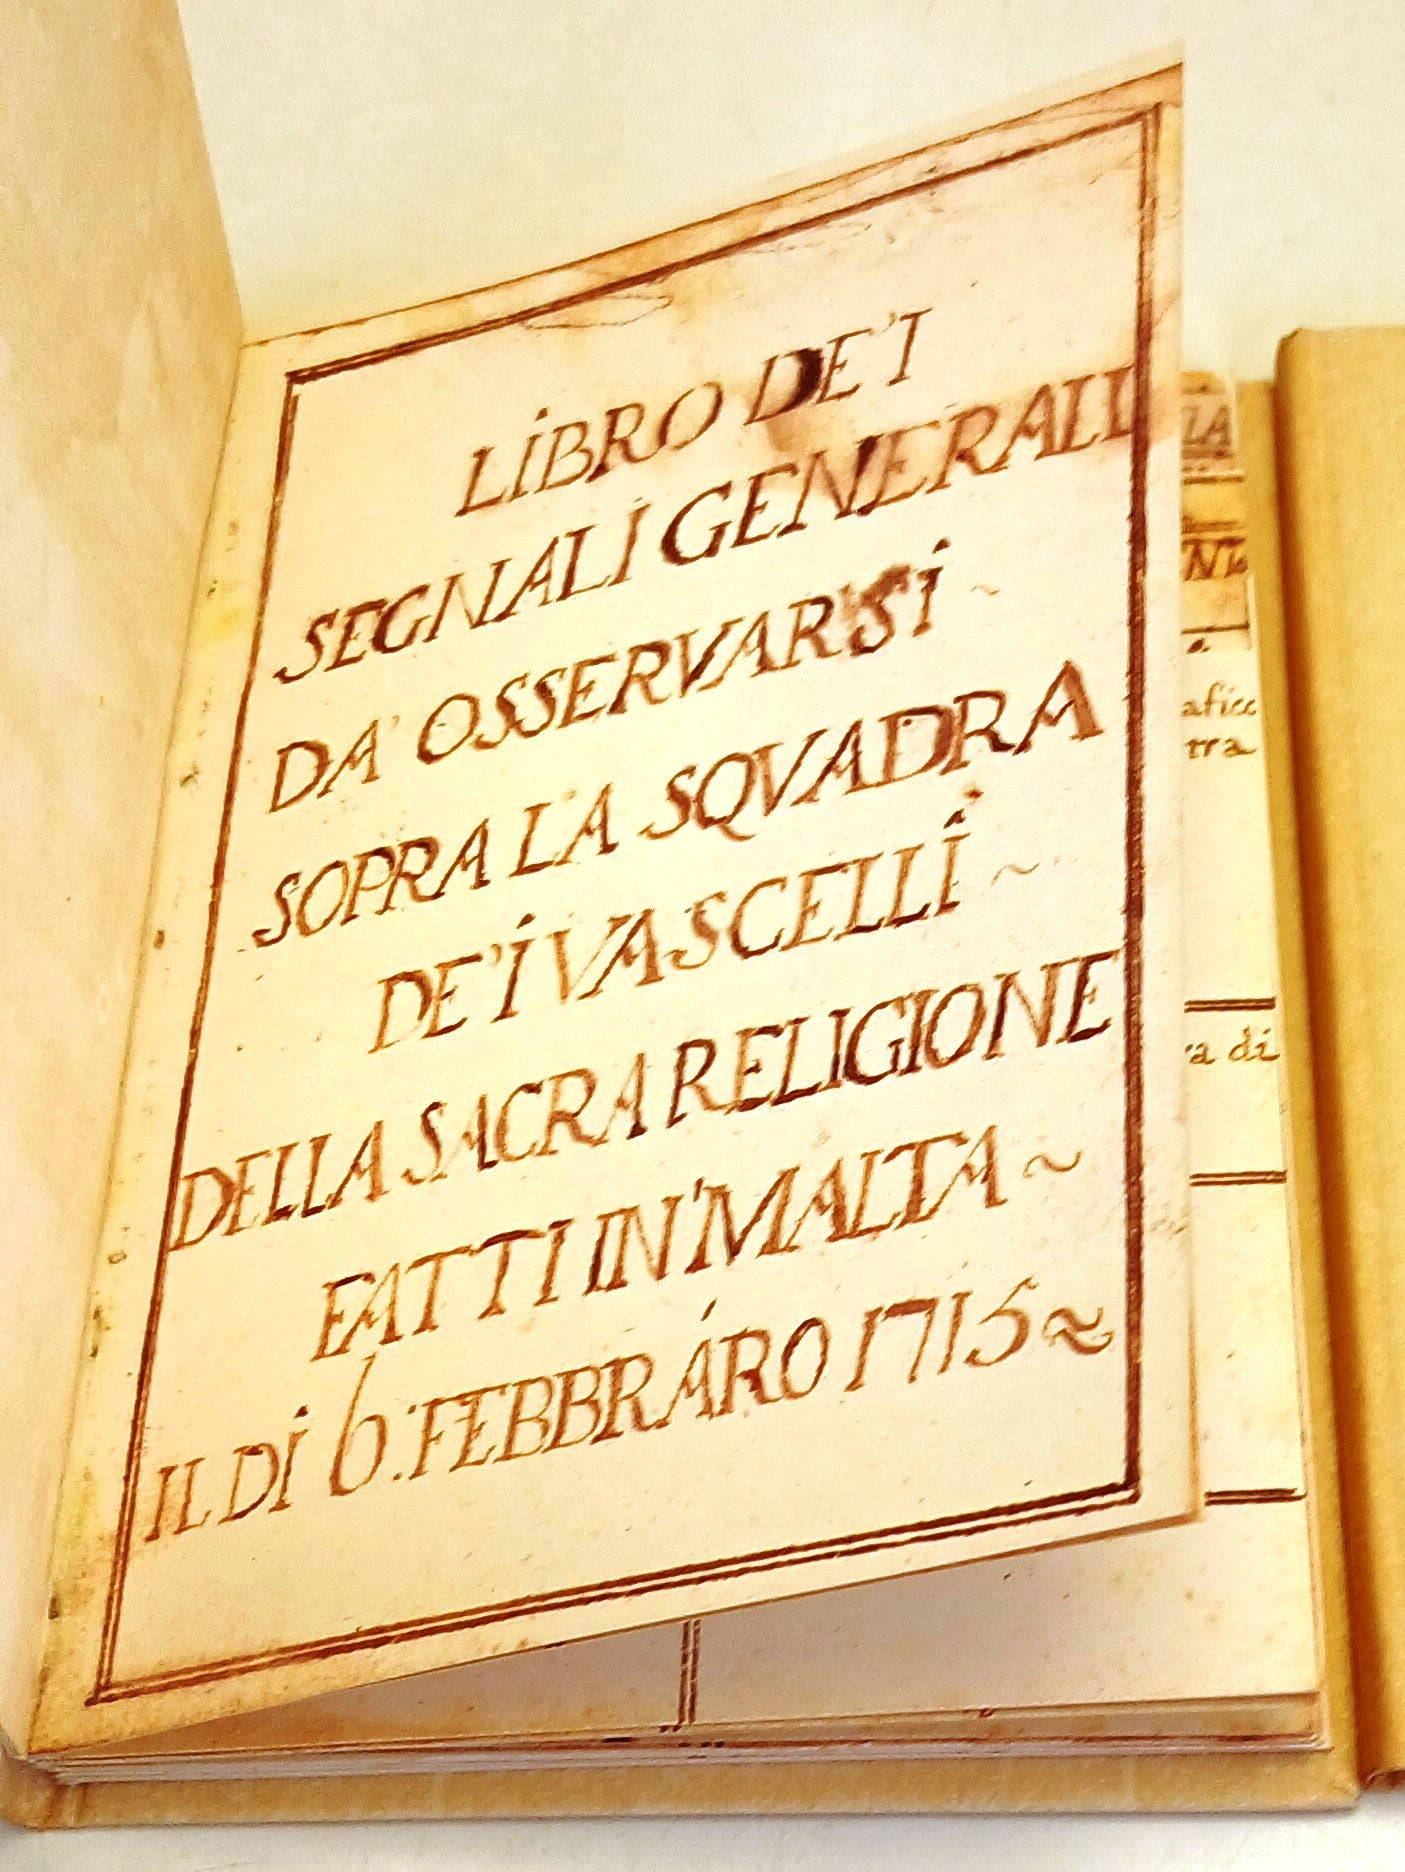 LiBRO DE'I
SEGNALI GENERALI
DA' OSSERVARSi ~
SOPRA LA SQVADRA
DE'i VASCELLi ~
DELLA SACRA RELIGIONE
FATTI IN'MALTA ~
IL Di 6. FEBBRÁRO 1715 ~
LA
afico
tra
ra di